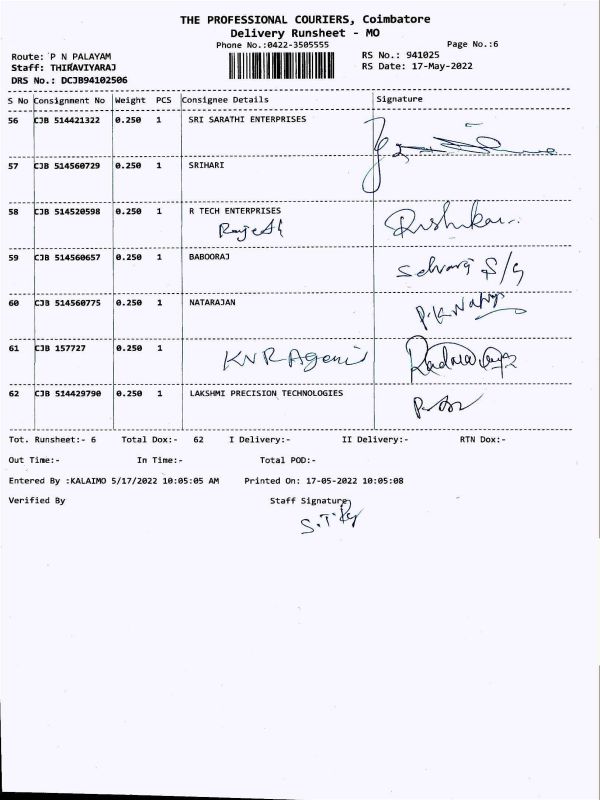 THE PROFESSIONAL COURIERS, Coimbatore
Delivery Runsheet - MO
Phone No.:0422-3505555 Page No.:6
Route: P N PALAYAM RS No.: 941025
Staff: THIRAVIYARAJ RS Date: 17-May-2022
DRS No.: DCJB94102506
S No Consignment No Weight PCS Consignee Details Signature
56 CJB 514421322 0.250 1 SRI SARATHI ENTERPRISES
57 CJB 514560729 0.250 1 SRIHARI
58 CJB 514520598 0.250 1 R TECH ENTERPRISES
Rajesh
59 CJB 514560657 0.250 1 BABOORAJ
60 CJB 514560775 0.250 1 NATARAJAN
61 CJB 157727 0.250 1
KNR
62 CJB 514429790 0.250 1 LAKSHMI PRECISION TECHNOLOGIES
Tot. Runsheet:- 6 Total Dox:- 62 I Delivery:- II Delivery:- RTN Dox:-
Out Time:- In Time:- Total POD:-
Entered By :KALAIMO 5/17/2022 10:05:05 AM Printed On: 17-05-2022 10:05:08
Verified By Staff Signature